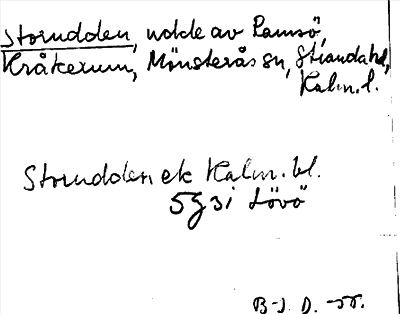 Storudden, udde av Ramsö,
Kråkerum, Mönsterås sn, Stranda hd,
Kalm. l.
Storudden ek Kalm. bl.
5g3i Lövö
B-J. D. -55.